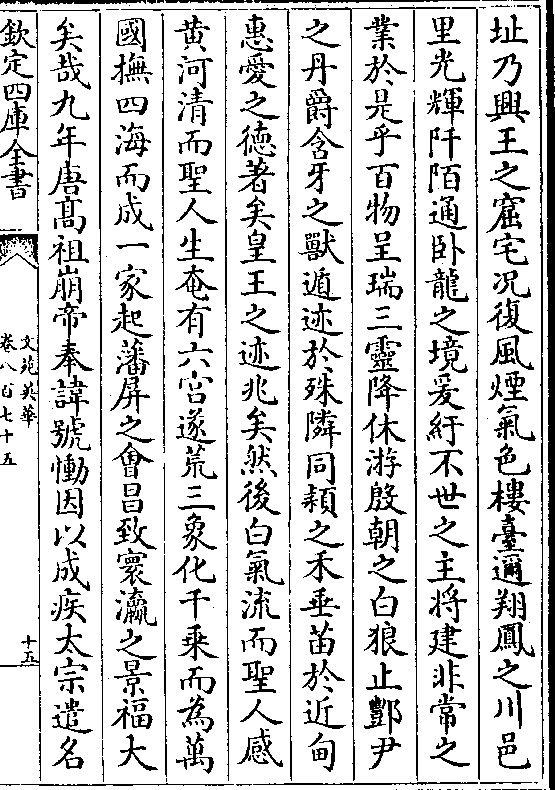 址乃興王之窟宅况復風煙氣色樓臺邇翔鳳之川邑
里光輝阡陌通卧龍之境爰紆不世之主将建非常之
業於是乎百物呈瑞三靈降休游殷朝之白狼止酆尹
之丹爵含牙之獸遁迹於殊隣同穎之禾垂苗於近甸
惠愛之德著矣皇王之迹兆矣然後白氣流而聖人感
黄河清而聖人生奄有六宫遂荒三象化千乘而為萬
國撫四海而成一家起藩屏之會昌致寰瀛之景福大
矣哉九年唐髙祖崩帝奉諱號慟因以成疾太宗遣名
欽定四庫全書
文苑英華
卷八百七十五
十五